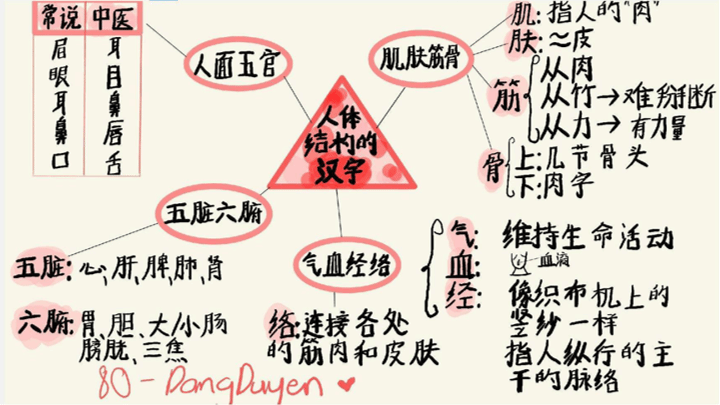 常说 中医
眉 耳
眼 目
耳 鼻
鼻 唇
口 舌
人面五官
肌肤筋骨
肌:指人的"肉"
肤:≈皮
筋
从肉
从竹→难掰断
从力→有力量
骨
上:几节骨头
下:肉字
人体
结构的
汉字
五脏六腑
五脏:心、肝、脾、肺、肾
六腑:胃、胆、大/小肠
膀胱、三焦
气血经络
络:连接各处
的筋肉和皮肤
气: 维持生命活动
血: 血液
经: 像织布机上的
竖纱一样
指人纵行的主
干的脉络
80-DangDuyen